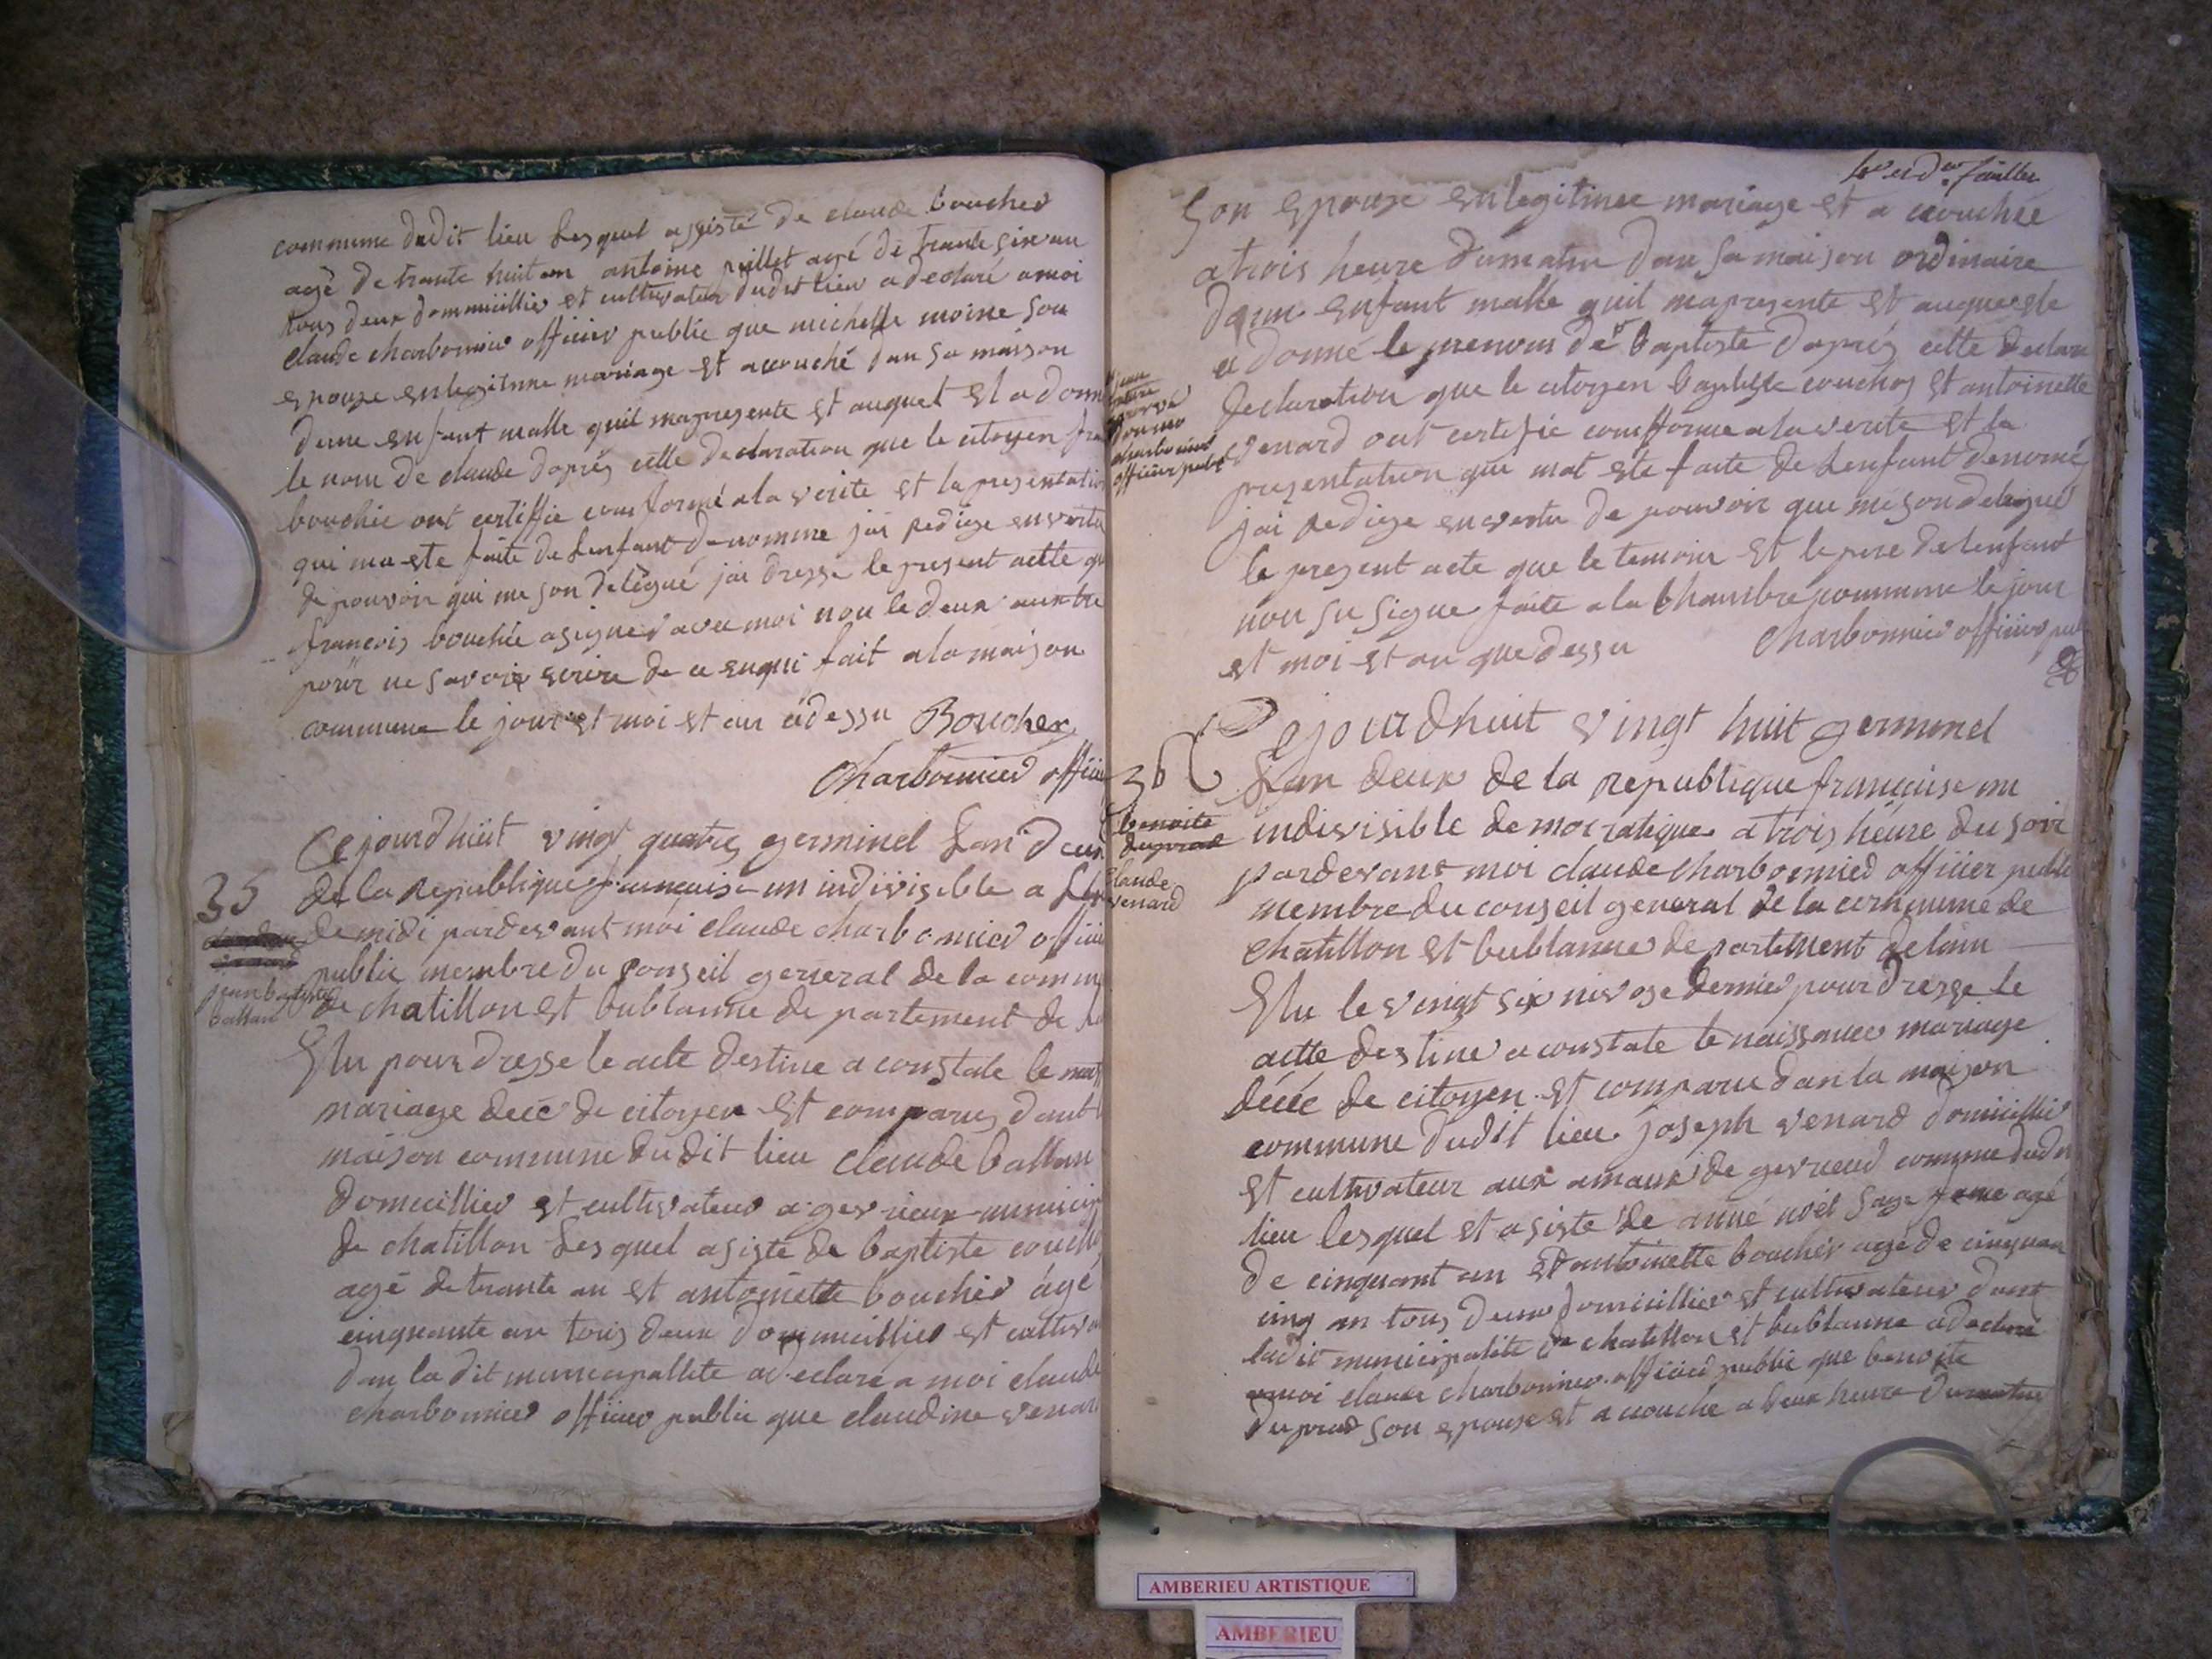 commune dudit lieu Lesquel assisté de claude boucher
agé de trante huit an antoine pillet agé de trante six an
tous deux dommiillier et cultivateur dudit lieu a declaré a moi
claude charbonnier officier public que michelle moine son
epouze en legitime mariage est accouché dan sa maison
dune enfant malle quil mapresente et auquel el a donn
le nom de claude daprés cette declaration que le citoyen fra
bouchée ont certiffie comforme a la verite et la presentatio
qui ma este faite de Lenfant denomme jai redige en vertu
de pouvoir qui me son delegué jai dresse le present actte qu
francois bouchée a signer avec moi nou le deux auxtre
pour ne savoir ecrire de ce enqui fait a la maison
commune le jour et moi et an cidessu Boucher
Charbonnier officie
35
Cejourdhuit vingt quatre germinel Lan deux
de la republique francaise un indivisible a
de midi pardevant moi claude charbonnier officie
public membre du conseil general de la commu
jean batiste
ballan
de chatillon et bublanne de partement de
Elu pour dresse le acte destine a constate le
mariage decé de citoyen et comparus dant
maison commune dudit lieu claude ballan
domicillier et cultivateur a gevrieux municip
de chatillon Lesquel asiste de baptiste couch
agé de trante an et antoinette bouchér agé
cinquante an tous deux dommicillier et cultiv
dan la dit municipallite a declaré a moi claude
charbonnier officier public que claudine venar
Son epouze en legitimee mariage et a ccouchée
a trois heure dumatin dan sa maison ordinaire
dune enfant malle quil mapresente et auquel ele
a donné le prenom de baptiste daprés cette declara
declaration que le citoyen baptiste couchoy et antoinette
venard ont certifie comfforme a la verite et la
presentation qui mat este faite de Lenfant denomé
jai redige en vertu de pouvoir que me son delegué
le present acte que le temoin et le pere de lenfant
non su signe faite a la chambre commune le jour
et moi et an que dessu Charbonnier officier pub
charbonnier
officier publi
36
benoite
duprad
claude
venard
Cejourdhuit vingt huit germinel
Lan deux de la republique francaise un
indivisible democratique a trois heure du soir
pardevant moi claude charbonnier officier public
membre du conseil general de la commune de
chatillon et bublanne departement delain
Elu le vingt six nivose dernier pour dresse le
actte destine a constate le naissance mariage
décée de citoyen et comparu dan la maison
commune dudit lieu joseph venard domicillier
et cultivateur aux amaux de gevrieux commune dudit
lieu lesquel et asiste de anné noél sage feme agé
de cinquant an et antoinette bouchér agé de cinquan
cinq an tous deux domicillier et cultivateur dant
ladit municipalite de chatillon et bublanne a declaré
amoi claude charbonnier officier public que benoite
duprad son epouze et a ccouche a deux heure dumatin
AMBERIEU ARTISTIQUE
AMBERIEU